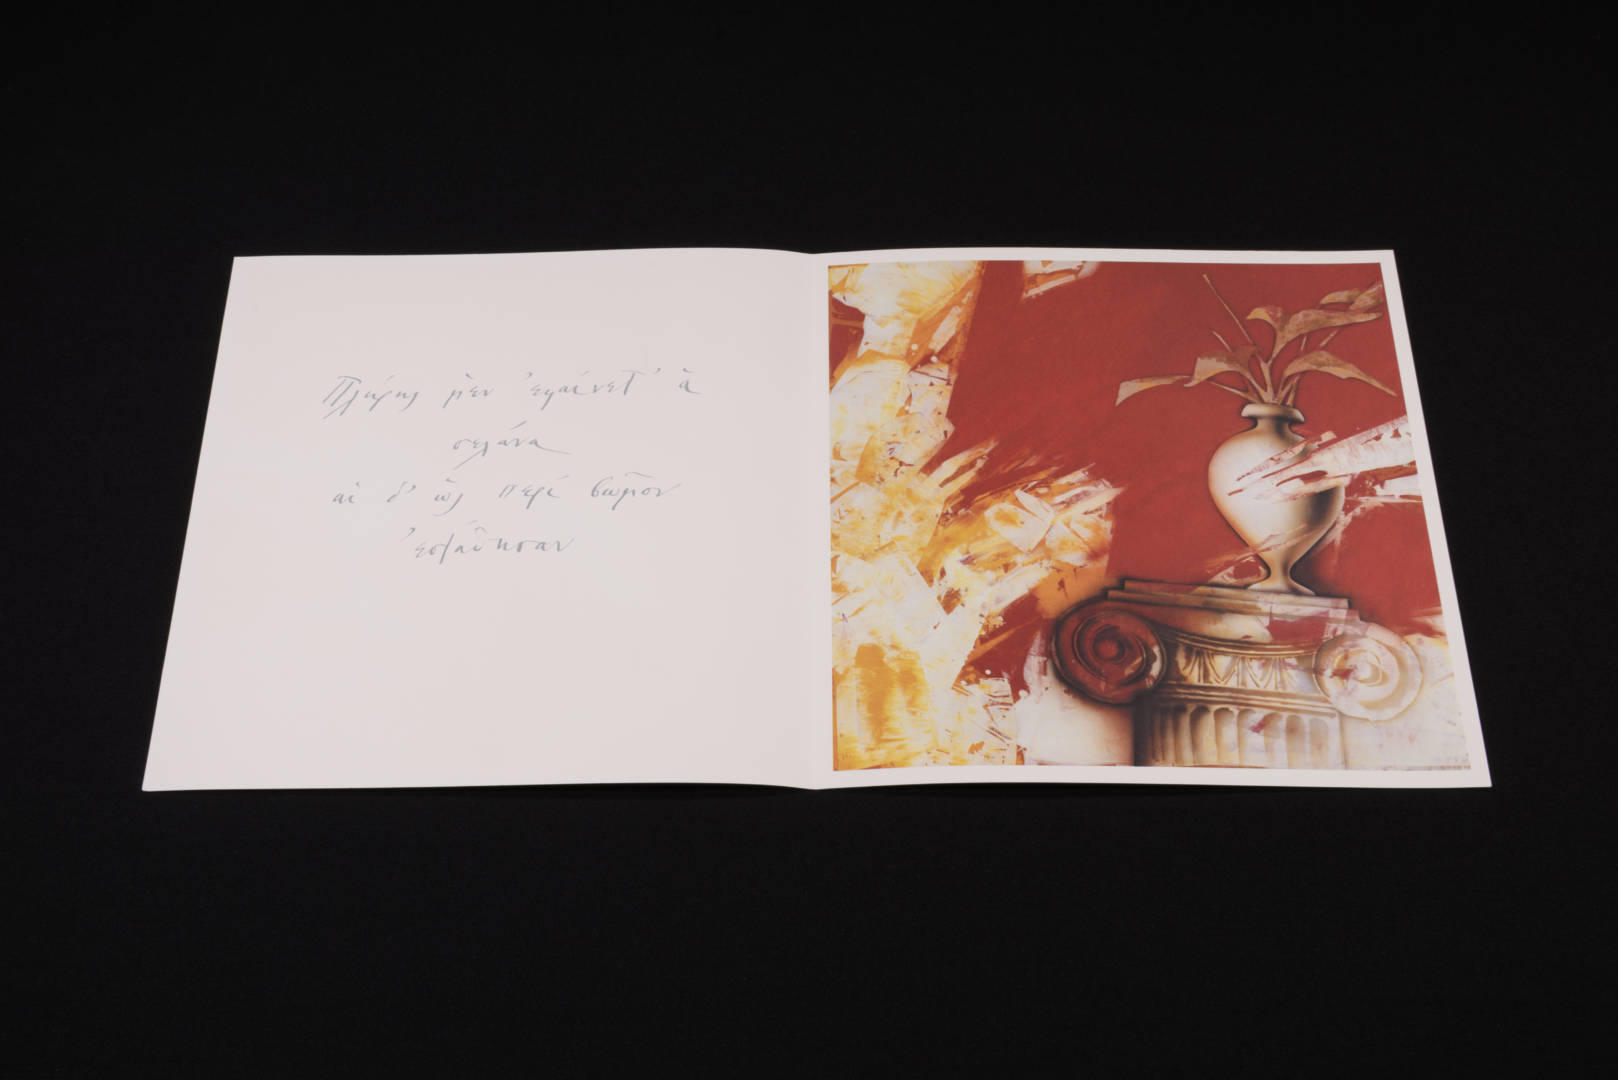 Πλήρης μὲν ̓εφαίνετ ̓ ἀ
σελάνα
αἰ δ ̓ ὠς περὶ βωμον
̓εσταθησαν